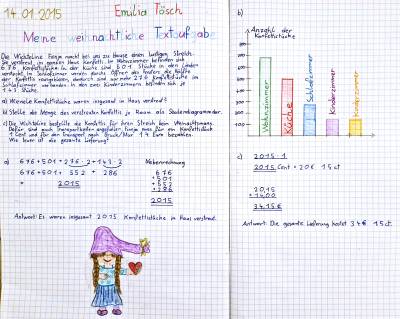 14.01.2015
Emilia Tösch
Meine weihnachtliche Textaufgabe
Die Wichteline Fanja macht bei uns zu Hause einen lustigen Streich.
Sie verstreut im ganzen Haus Konfetti. Im Wohnzimmer befinden sich
676 Konfettistücke in der Küche sind 501 Stücke in den Ländern
verteilt. Im Schlafzimmer werden durchs Öffnen des Fensters die Hälfte
der Konfettis rausgeblasen, dadurch sind nur mehr 276 Konfettistücke im
Schlafzimmer vorhanden. In den zwei Kinderzimmern befinden sich je
143 Stücke.
a) Wieviele Konfettistücke waren insgesamt im Haus verstreut?
b) Stelle die Menge des verstreuten Konfettis je Raum als Säulendiagramm dar.
c) Die Wichteline bestellte die Konfettis für ihren Streich beim Weihnachtsmann.
1 Cent und für den Transport nach Bruck/Mur 14 Euro bezahlen.
Wie teuer ist die gesamte Lieferung?
a) 676+501+276·2+143·2 Nebenrechnung
676+501+552+286 676
= 2015 +501
+552
+286
2015
Antwort: Es waren insgesamt 2015 Konfettistücke im Haus verstreut.
b)
Anzahl der
Konfettistücke
Wohnzimmer
Küche
Schlafzimmer
Kinderzimmer
Kinderzimmer
c) 2015·1
2015 Cent = 20€ 15ct
20,15
+14,00
34,15€
Antwort: Die gesamte Lieferung kostet 34€ 15ct.